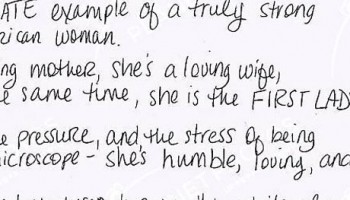 ATE example of a truly strong
rican woman.
ng mother, she's a loving wife,
e same time, she is the FIRST LAD
e pressure, and the stress of being
icroscope - she's humble, loving, and